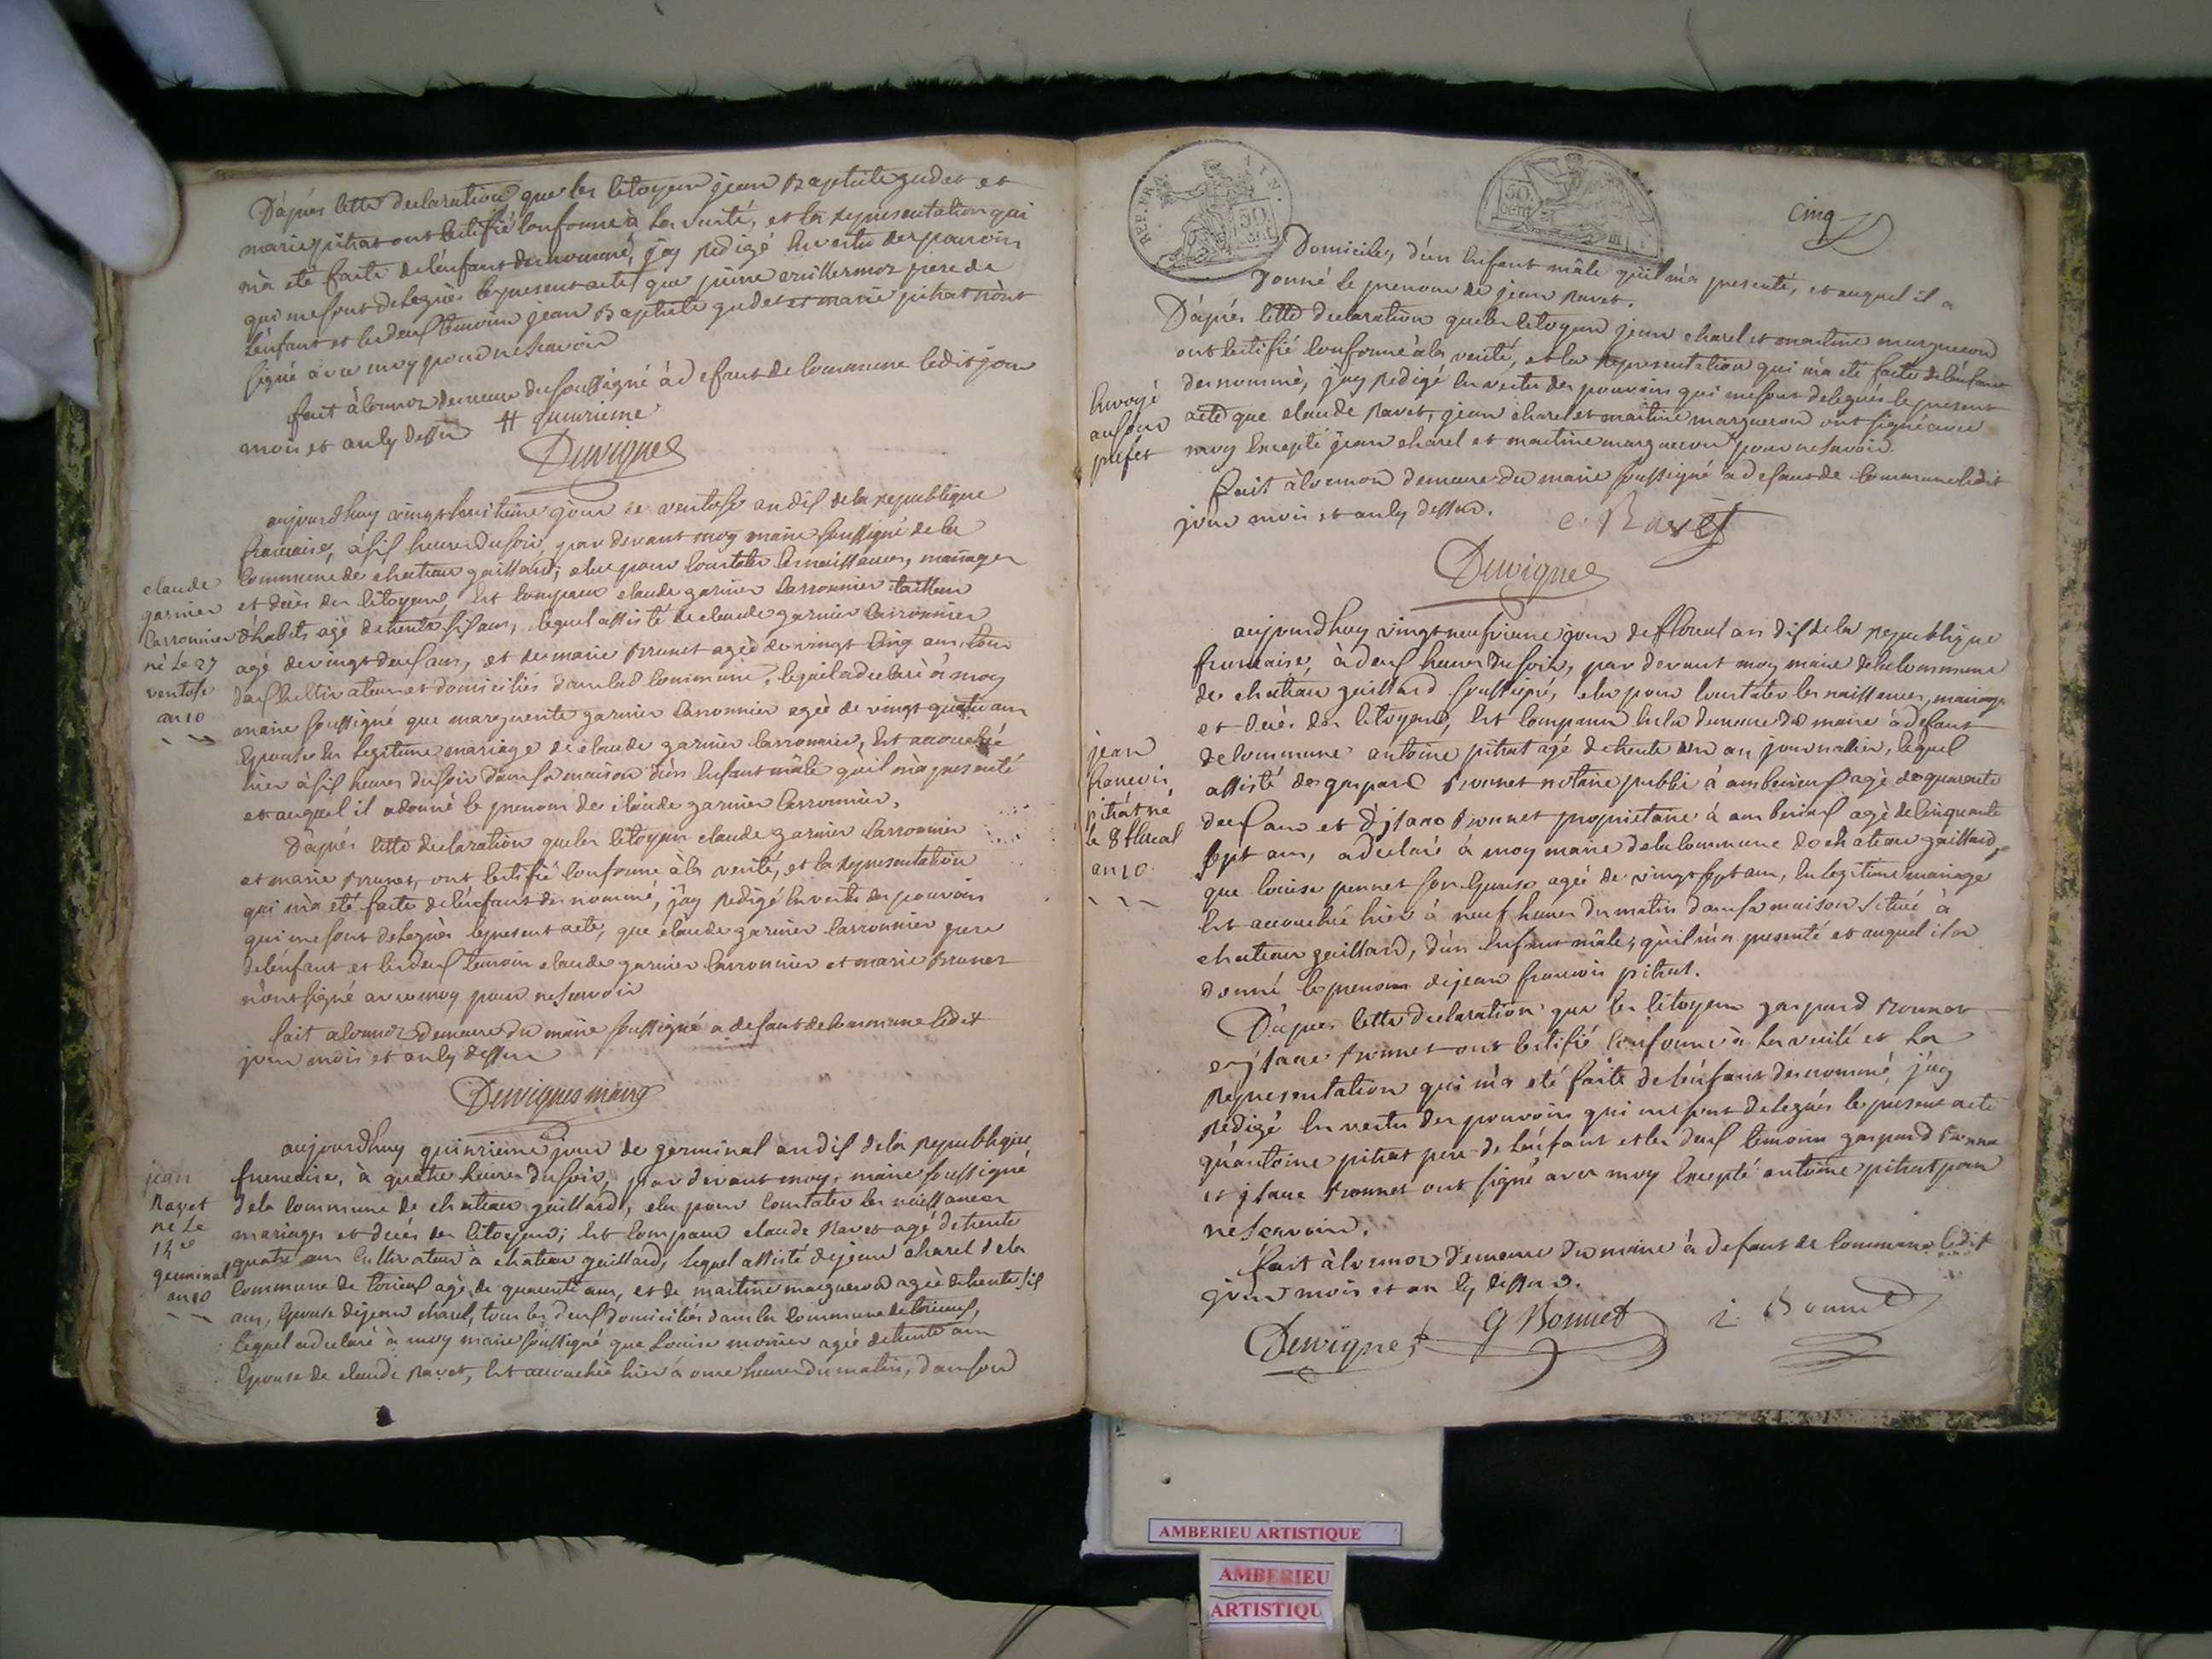 D'après cette declaration que les citoyens jean Baptiste gudet et
marie pitrat ont certifié conforme à la verité, et la representation qui
m'a eté faite de l'enfant denommé, j'ay redigé en vertu des pouvoirs
qui me sont delegués le present acte que pierre père de
l'enfant et les deux temoins jean Baptiste gudet et marie pitrat n'ont
signé avec moy pour ne scavoir
fait à demeure du soussigné à defaut de commune ledit jour
mois et an cy dessus
Duvignes
aujourdhuy vingt huitieme jour de ventose an dix de la republique
francaise, à six heures du soir, par devant moy maire soussigné de la
commune de chateau gaillard, elu pour constater les naissances, mariages
et decès des citoyens, est comparu claude garnier carronnier tailleur
d'habits agé de trente six ans, lequel assisté de claude garnier carronnier
agé de vingt deux ans, et de marie Brunet agée de vingt cinq ans, tous
deux cultivateurs et domiciliés dans lad commune, lequel a declaré à moy
maire soussigné que marguerite garnier carronnier agée de vingt quatre ans
epouse en legitime mariage de claude garnier carronnier, est accouchée
hier à six heures du soir dans sa maison d'un enfant mâle qu'il m'a presenté
et auquel il a donné le prenom de claude garnier carronnier.
D'après cette declaration que les citoyens claude garnier carronnier
et marie Brunet, ont certifié conforme à la verité, et la representation
qui m'a eté faite de l'enfant denommé, j'ay redigé en vertu des pouvoirs
qui me sont delegués le present acte, que claude garnier carronnier père
de l'enfant et les deux temoins claude garnier carronnier et marie Brunet
n'ont signé avec moy pour ne scavoir
fait demeure du maire soussigné a defaut de commune ledit
jour mois et an cy dessus
Duvignes maire
aujourdhuy quinzieme jour de germinal an dix de la republique
francaise, à quatre heures du soir, par devant moy, maire soussigné
de la commune de chateau gaillard, elu pour constater les naissances
mariages et decès des citoyens; est comparu claude Ravet agé de trente
quatre ans cultivateur à chateau gaillard, lequel assisté de jean charel de la
commune de agé de quarante ans, et de martine margueron agée de trente six
ans, epouse de jean charel, tous les deux domiciliés dans la commune de
lequel a declaré à moy maire soussigné que Louise monier agée de trente ans
epouse de claude Ravet, est accouchée hier à onze heures du matin, dans son
claude
garnier
carronnier
né le 27
ventose
an 10
jean
Ravet
né le
14e
germinal
an 10
cinq
REP. FRA.
AIN.
50
50.
CENT.
Domicile, d'un enfant mâle qu'il m'a presenté, et auquel il a
donné le prenom de jean Ravet.
D'après cette declaration que les citoyens jean charel et martine margueron
ont certifié conforme à la verité, et la representation qui m'a eté faite de l'enfant
denommé, j'ay redigé en vertu des pouvoirs qui me sont delegués le present
acte que claude Ravet, jean charel et martine margueron ont signé avec
moy excepté jean charel et martine margueron pour ne scavoir.
fait à demeure du maire soussigné a defaut de commune ledit
jour mois et an cy dessus.
c. Ravet
Duvignes
envoyé
au sous
prefet
aujourdhuy vingt neufvieme jour de floreal an dix de la republique
francaise, à deux heures du soir, par devant moy maire de la commune
de chatéau gaillard soussigné, elu pour constater les naissances, mariages
et decès des citoyens, est comparu en la demeure du maire à defaut
de commune antoine pitrat agé de trente un an journallier, lequel
assisté de gaspard Bonnet notaire public à amberieux agé de quarante
deux ans et d'jsaac Bonnet proprietaire à amberieux agé de cinquante
sept ans, a declaré à moy maire de la commune de chateau gaillard,
que louise pennet son epouse agée de vingt sept ans, en legitime mariage
est accouchée hier à neuf heures du matin dans sa maison située à
chateau gaillard, d'un enfant mâle, qu'il m'a presenté et auquel il a
donné le prenom de jean francois pitrat.
D'après cette declaration que les citoyens gaspard Bonnet
et jsaac Bonnet ont certifié conforme à la verité et la
representation qui m'a eté faite de l'enfant denommé, j'ay
redigé en vertu des pouvoirs qui me sont delegués le present acte
qu'antoine pitrat père de l'enfant et les deux temoins gaspard Bonnet
et jsaac Bonnet ont signé avec moy excepté antoine pitrat pour
ne scavoir.
fait à demeure du maire à defaut de commune ledit
jour mois et an cy dessus.
Duvignes G Bonnet i. Bonnet
jean
francois
pitrat né
le 8 floreal
an 10
AMBERIEU ARTISTIQUE
AMBERIEU
ARTISTIQU